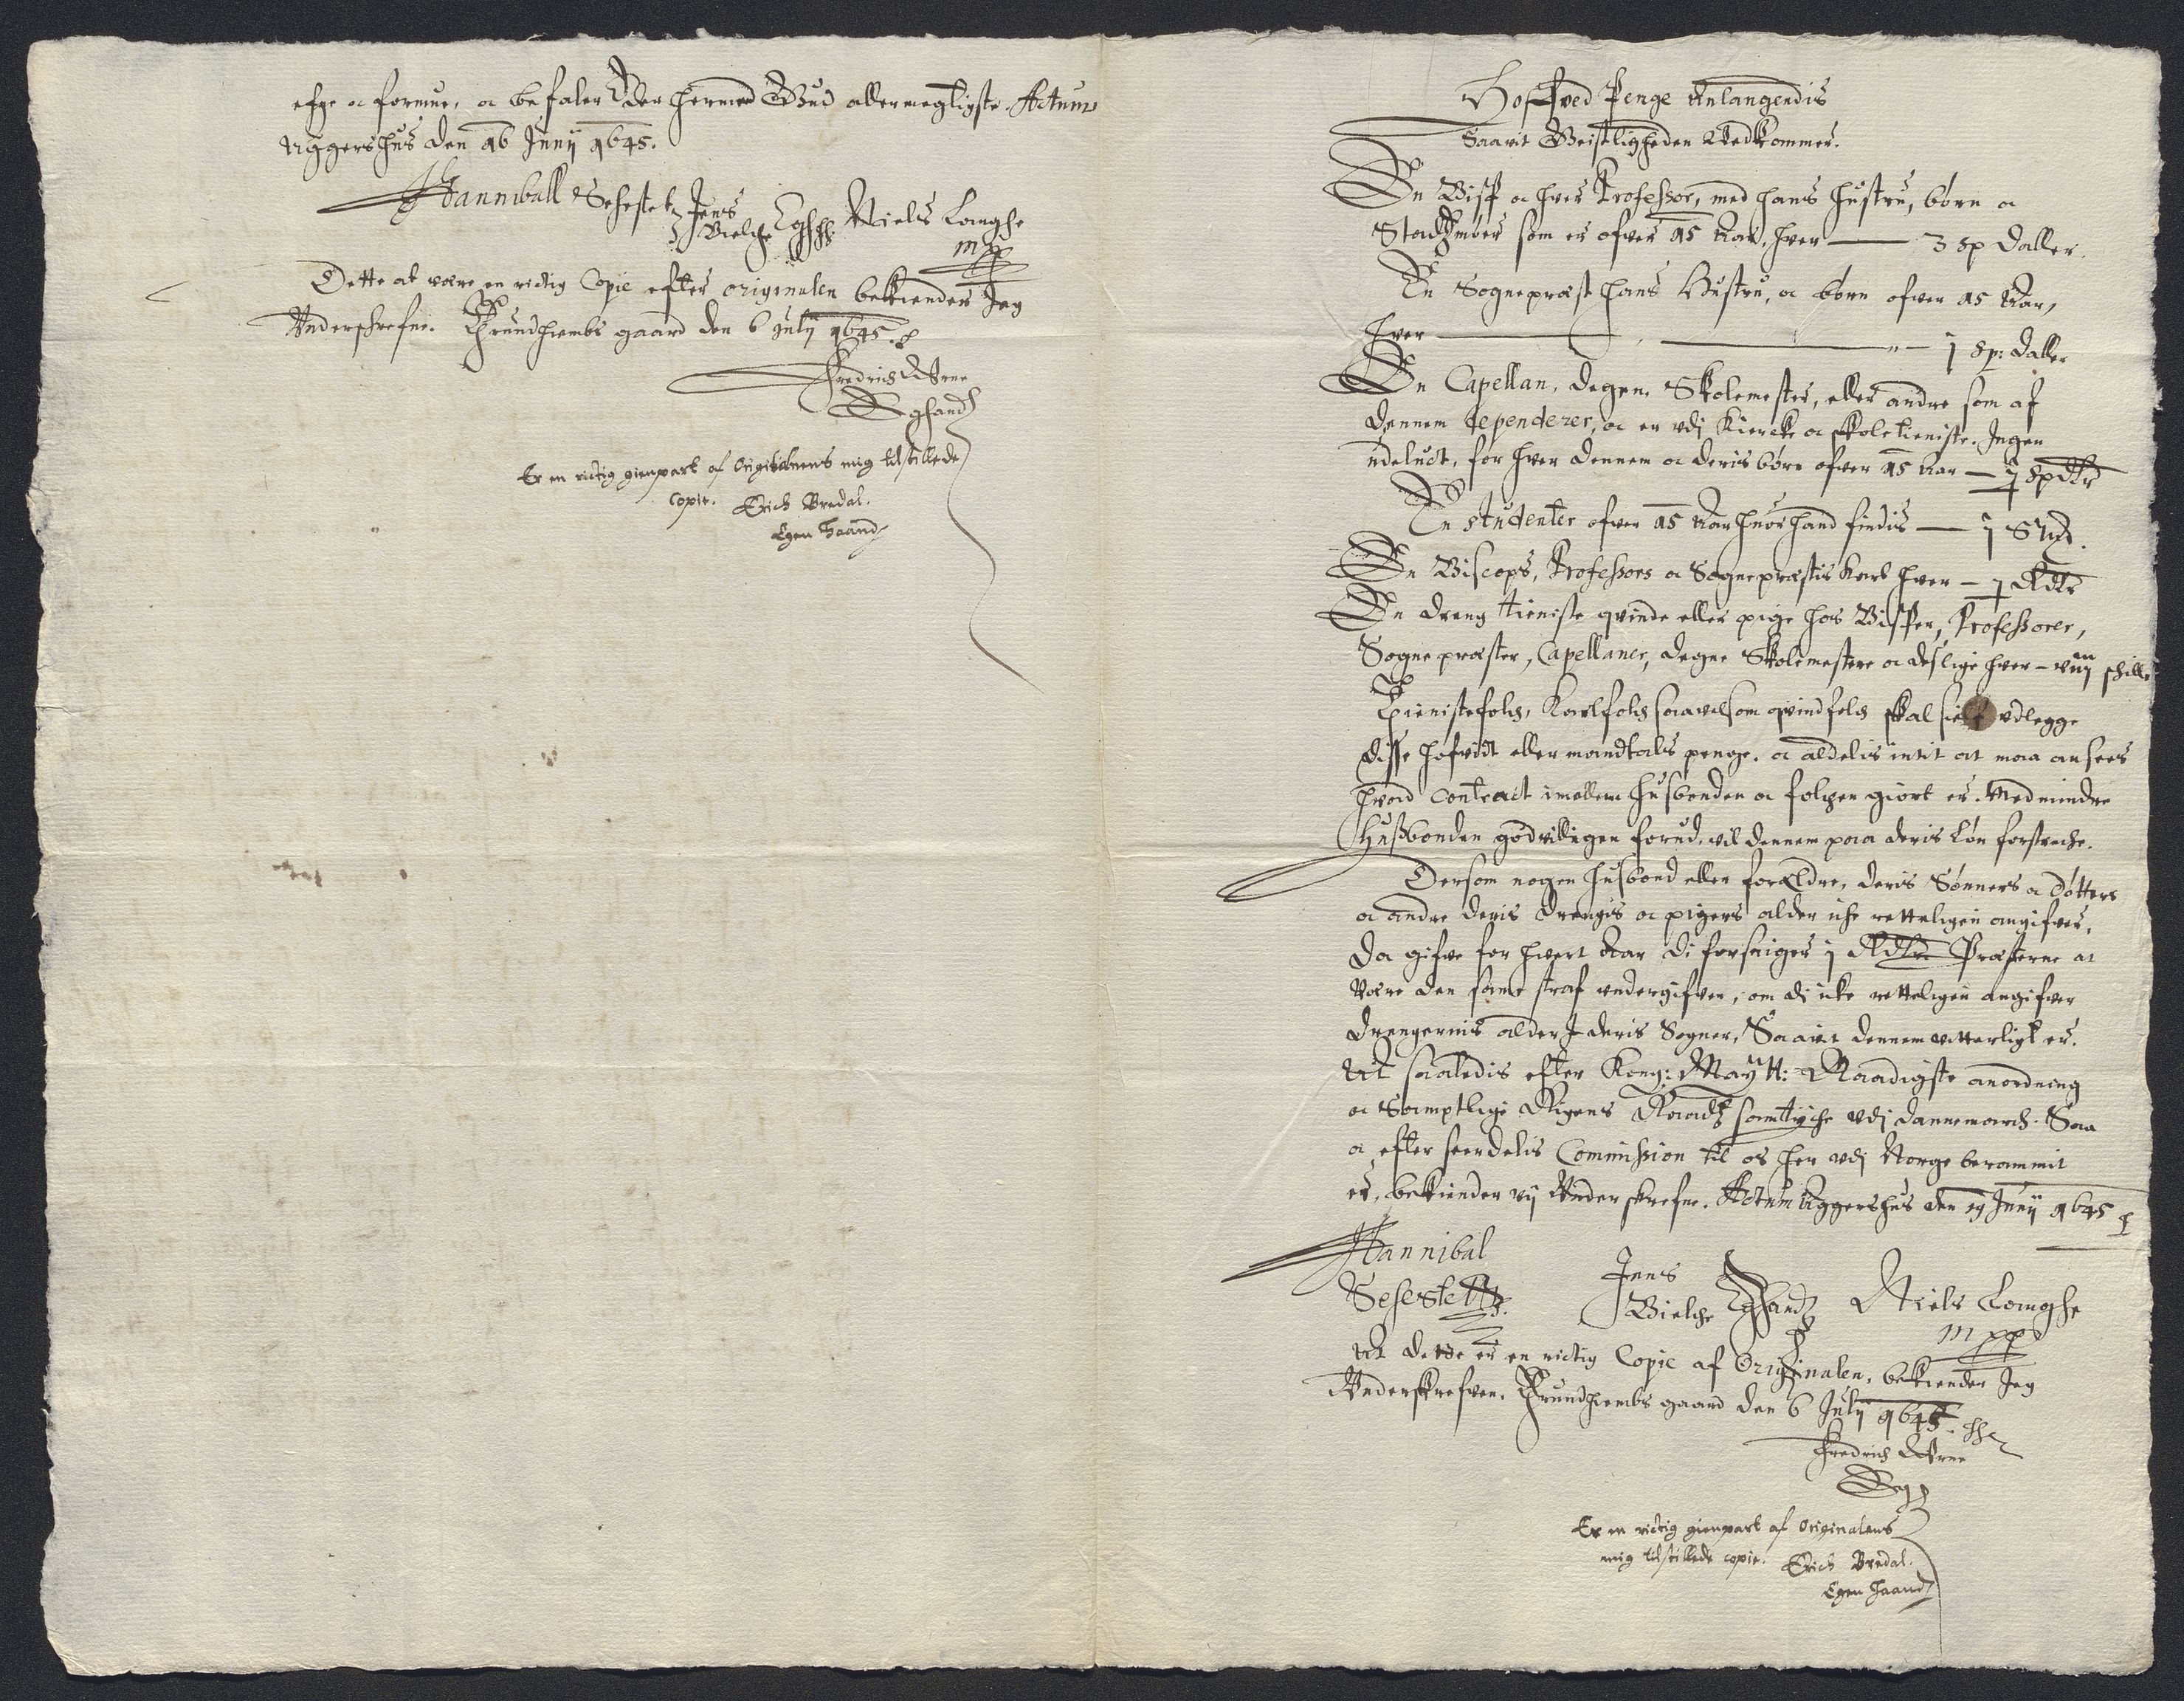 efne oc formue, oc befaler Eder hermed Gud allermegtigste. Actum
Aggershus den 16 Junij 1645.
Hanniball Sehestet Jens Niels Langhe
Bielche Eghh mpp
Dette at være en rictig Copie efter originalen bekiender Jeg
Underschrefne. Trundhiembs gaard den 6 Julij 1645.
Fredrich Urne
Eghand
Er en rictig gienpart af Originalens mig tilstillede
copie. Erich Bredal.
Egen Haand
Hoffved Penge Anlangendis
Saavit Geistligheden Vedkommer.
En Bisp oc hver Professor, med hans hustru, børn oc
som er ofver 15 Aar, hver — 3 sp Daller.
En Sognepræst hans Hustru, oc børn ofver 15 Aar,
hver — j sp: daller
En Capellan, Degen, Skolemester, eller andre som af
dennem dependerer, oc er udj Kiercke oc skoletieniste. Ingen
udeluct, for hver dennem oc deris børn ofver 15 Aar — spdlr
En studenter ofver 15 Aar huor hand findis — j
En Biscops, Professors oc Sognepræstis Karl hver — Rdlr
En dreng tieniste qvinde eller pige hos Bispen, Professorer,
Sognepræster, Capellaner, degne Skolemestere oc deslige hver — schill
Tienistefolch, Karlfolch saavelsom qvindfolch skal sielf udlegge
disse hofvidt eller mandtals penge. oc aldelis intit at maa ansees
hvad contract imellem Husbonden oc folchen giort er. Med mindre
Hussbonden godvilligen forud, vil dennem paa deris løn forstreche.
Dersom nogen husbond eller forældre, deris Sønners oc døtters
oc andre deris drengis oc pigers alder iche retteligen angifver,
da gifve for hvert Aar di forsuiger j Rdlr. Præsterne at
være den same straf undergifven, om di icke retteligen angifver
drengernis alder J deris Sogner, Saavit dennem vitterligt er.
At saaledis efter Kong: Maytt: Naadigste anordning
oc Samptlige Rigens Raadz samtyche udj Dannemarch. Saa
oc efter seendelis Commission til os her udj Norge berammit
er, bekiender vij Underskrefne. Actum Aggershus den 19 Junij 1645
Hannibal
Sehestett Jens Niels Langhe
Bielche Eghandt mpp
At dette er en rictig Copie af Originalen, bekiender Jeg
Underskrefven. Trundhiembs gaard den 6 Julij 1645.
Fredrich Urne
Egh
Er en rictig gienpart af Originalens
mig tilstillede copie. Erich Bredal.
Egen Haand